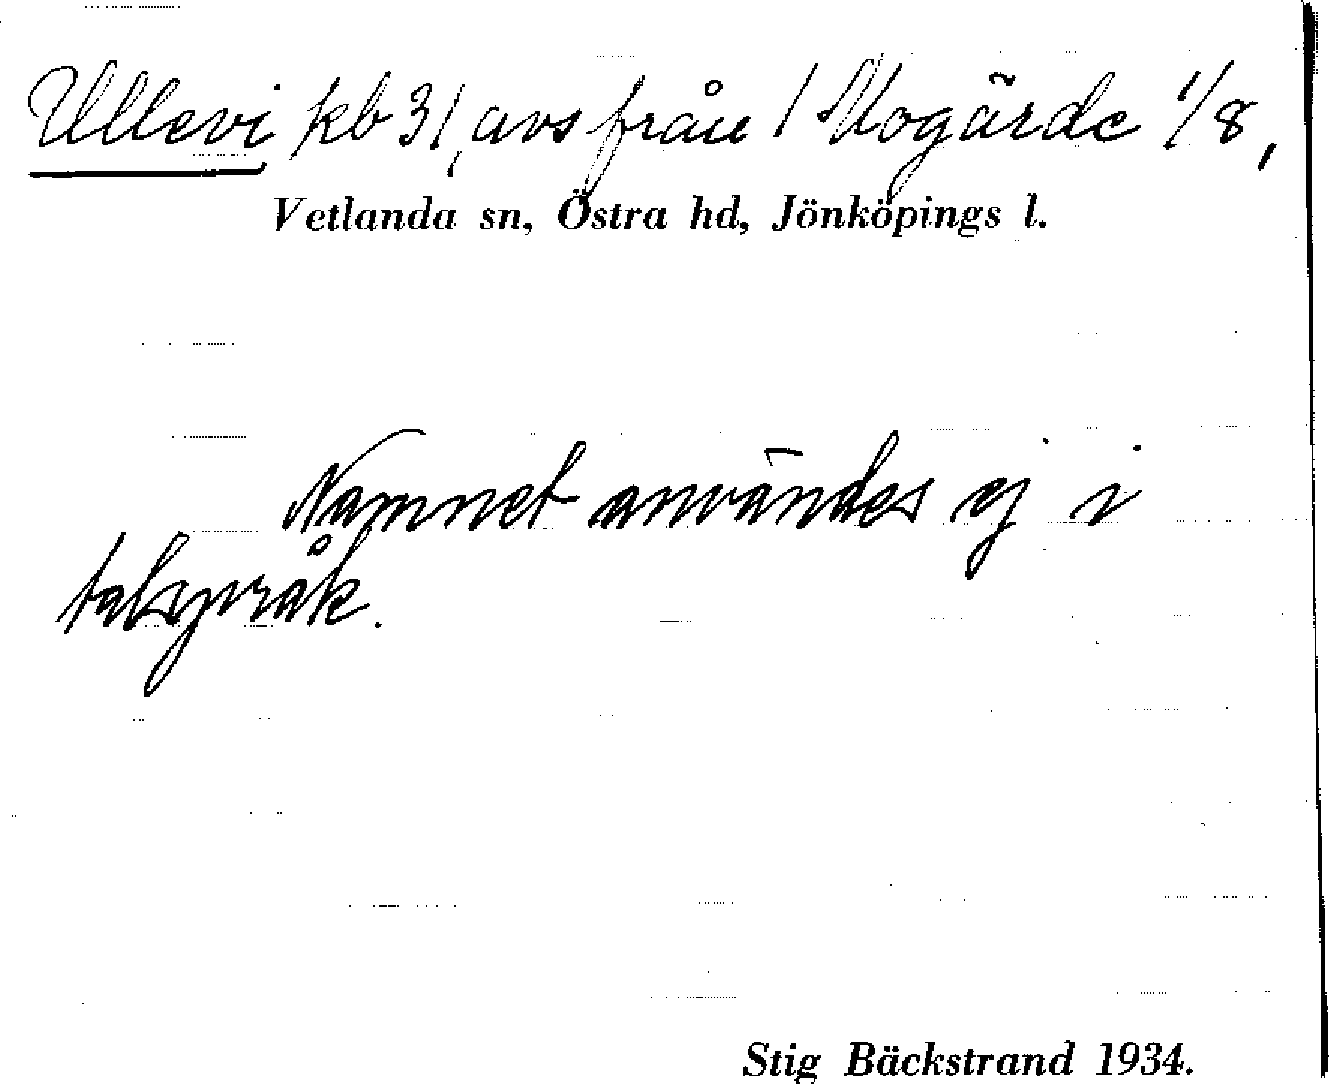 Ullevi kb 31, avs från 1 Mogärde 1/8,
Vetlanda sn, Östra hd, Jönköpings l.
Namnet användes ej i
talspråk.
Stig Bäckstrand 1934.